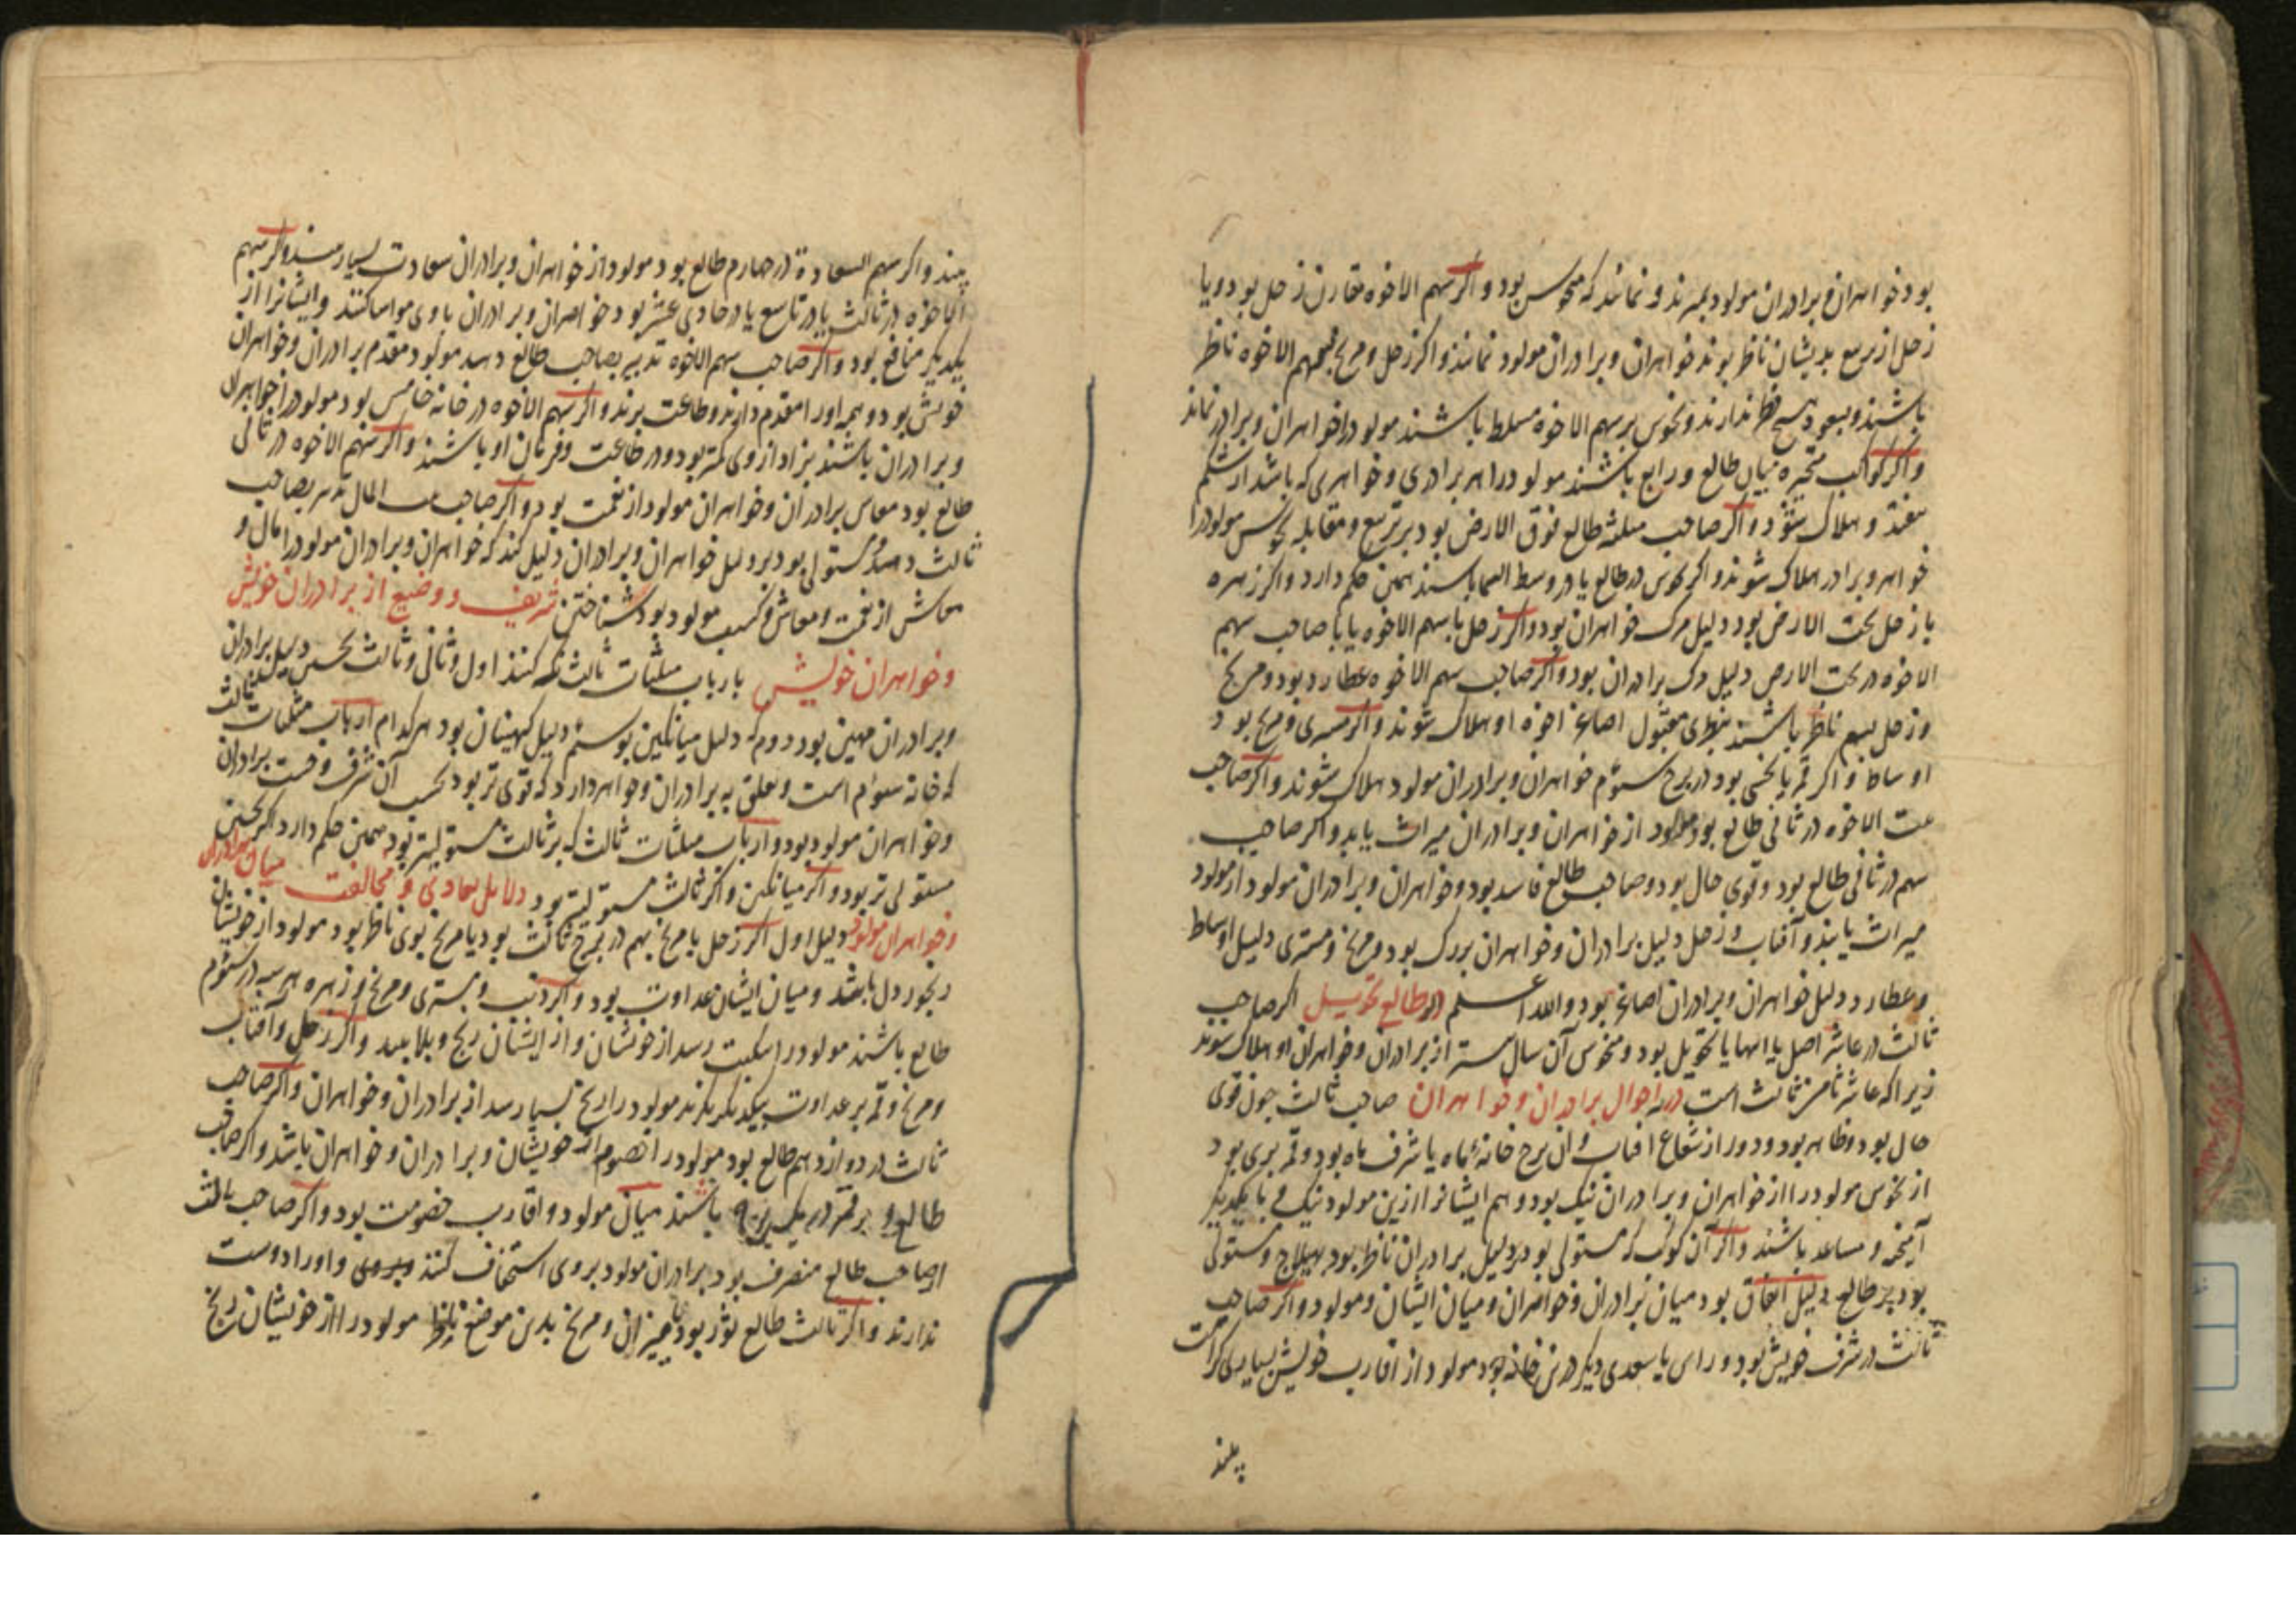 بود خواهران و برادران مولود بمیرند و نمانند که منحوس بود و اکر سهم الاخوه مقارن زحل بود و یا
زحل از تربیع بدیشان ناظر بود خواهران و برادران مولود نمانند و اکر زحل و مریخ بسهم الاخوه ناظر
باشند و سعود هیچ نظر ندارند و نحوس بر سهم الاخوه مسلط باشند مولود را خواهران و برادر نماند
و اکر کواکب متحیره میان طالع و رابع باشند مولود را هر برادری و خواهری که باشد از شکم
بیفتد و هلاک شود و اکر صاحب مثلثه طالع فوق الارض بود بر تربیع و مقابله نحوس مولود را
خواهر و برادر هلاک شوند و اکر نحوس در طالع یا در وسط السما باشند همین حکم دارد و اکر زهره
با زحل تحت الارض بود دلیل مرک خواهران بود و اکر زحل با سهم الاخوه یا با صاحب سهم
الاخوه در تحت الارض دلیل مرک برادران بود و اکر صاحب سهم الاخوه عطارد بود و مریخ
و زحل بسهم ناظر باشند بنظری مقبول اصاغر اخوه او هلاک شوند و اکر مشتری و مریخ بود
اوساط و اکر قمر با نحسی بود در برج سوم خواهران و برادران مولود هلاک شوند و اکر صاحب
بیت الاخوه در ثانی طالع بود مولود از خواهران و برادران میراث یابد و اکر صاحب
سهم در ثانی طالع بود و قوی حال بود و صاحب طالع فاسد بود و خواهران و برادران مولود از مولود
میراث یابند و آفتاب و زحل دلیل برادران و خواهران بزرک بود و مریخ و مشتری دلیل اوساط
و عطارد دلیل خواهران و برادران اصاغر بود والله اعلم در طالع تحویل اکر صاحب
ثالث در عاشر اصل یا انتها یا تحویل بود و منحوس آن سال از برادران و خواهران او هلاک شوند
زیرا که عاشر ثامن ثالث است در احوال برادران و خواهران صاحب ثالث چون قوی
حال بود و ظاهر بود و دور از شعاع افتاب و آن برج خانهٔ ماه یا شرف ماه بود و قمر بری بود
از نحوس مولود را از خواهران و برادران نیک بود و هم ایشانرا ازین مولود نیکی و با یکدیکر
آمیخته و مساعد باشند و اکر آن کوکب که مستولی بود بر دلیل برادران ناظر بود بهیلاج و مستولی
بود بر طالع دلیل اتفاق بود میان برادران و خواهران و میان ایشان و مولود و اکر صاحب
ثالث در شرف خویش بود و راس یا سعدی دیکر درین خانه بود مولود از اقارب خویش بسیاری کرامت
بیند
بیند و اکر سهم السعادة در چهارم طالع بود مولود از خواهران و برادران سعادت بسیار بیند و اکر سهم
الاخوه در ثالث یا در تاسع یا در حادی عشر بود خواهران و برادران با وی مواسا کنند و ایشانرا از
یکدیکر منافع بود و اکر صاحب سهم الاخوه تدبیر بصاحب طالع دهد مولود مقدم برادران و خواهران
خویش بود و همه او را مقدم دارند و طاعت برند و اکر سهم الاخوه در خانه خامس بود مولود را خواهران
و برادران باشند بزاد از وی کمتر بود و در طاعت و فرمان او باشند و اکر سهم الاخوه در ثانی
طالع بود معاش برادران و خواهران مولود از نعمت بود و اکر صاحب بیت المال تدبیر بصاحب
ثالث دهد و مستولی بود بر دلیل خواهران و برادران دلیل کند که خواهران و برادران مولود را مال و
معاش از نعمت و معاش و کسب مولود بود شناختن شریف و وضیع از برادران خویش
و خواهران خویش بارباب مثلثات ثالث نکه کنند اول و ثانی و ثالث نخستین دلیل برادران
و برادران مهین بود دوم که دلیل میانکین بود سوم دلیل کهینان بود هر کدام از ارباب مثلثات ثالث
که خانه سوم است و تعلق به برادران و خواهر دارد که قوی تر بود بحسب آن شرف و خست برادران
و خواهران مولود بود و ارباب مثلثات ثالث که بر ثالث مستولیتر بود همین حکم دارد اکر نخستین
مستولی تر بود و اکر میانکین و اکر ثالث مستولیتر بود دلایل معادی و مخالفت میان برادران
و خواهران مولود دلیل اول اکر زحل با مریخ بهم در برج ثالث بود یا مریخ بوی ناظر بود مولود از خویشان
رنجور دل باشد و میان ایشان عداوت بود و اکر ذنب و مشتری و مریخ و زهره هر سه در سوم
طالع باشند مولود را نکبت رسد از خویشان و از ایشان رنج و بلا بیند و اکر زحل و آفتاب
و مریخ و قمر بر عداوت بیکدیکر نکرند مولود را رنج بسیار رسد از برادران و خواهران و اکر صاحب
ثالث در دوازدهم طالع بود مولود را خصوم از خویشان و برادران و خواهران باشد و اکر صاحب
طالع و قمر در یک برج باشند میان مولود و اقارب خصومت بود و اکر صاحب ثالث
از صاحب طالع منصرف بود برادران مولود بر وی استخفاف کنند و او را دوست
ندارند و اکر ثالث طالع ثور بود یا میزان و مریخ بدین موضع ناظر مولود را از خویشان رنج